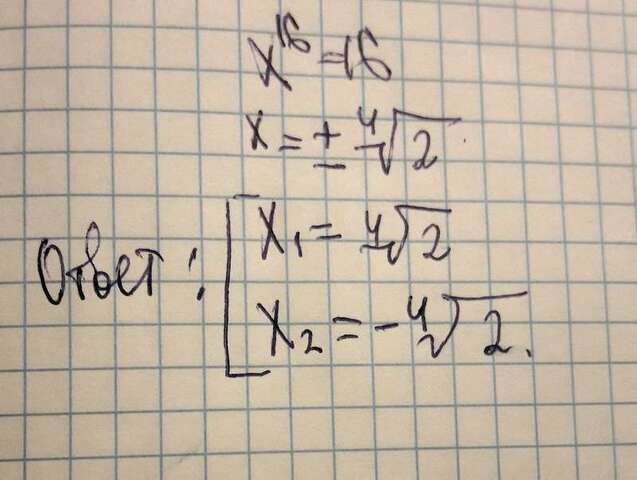 x¹⁶ = 16
x = ± ∜2.
Ответ: [ x₁ = ∜2
x₂ = -∜2.